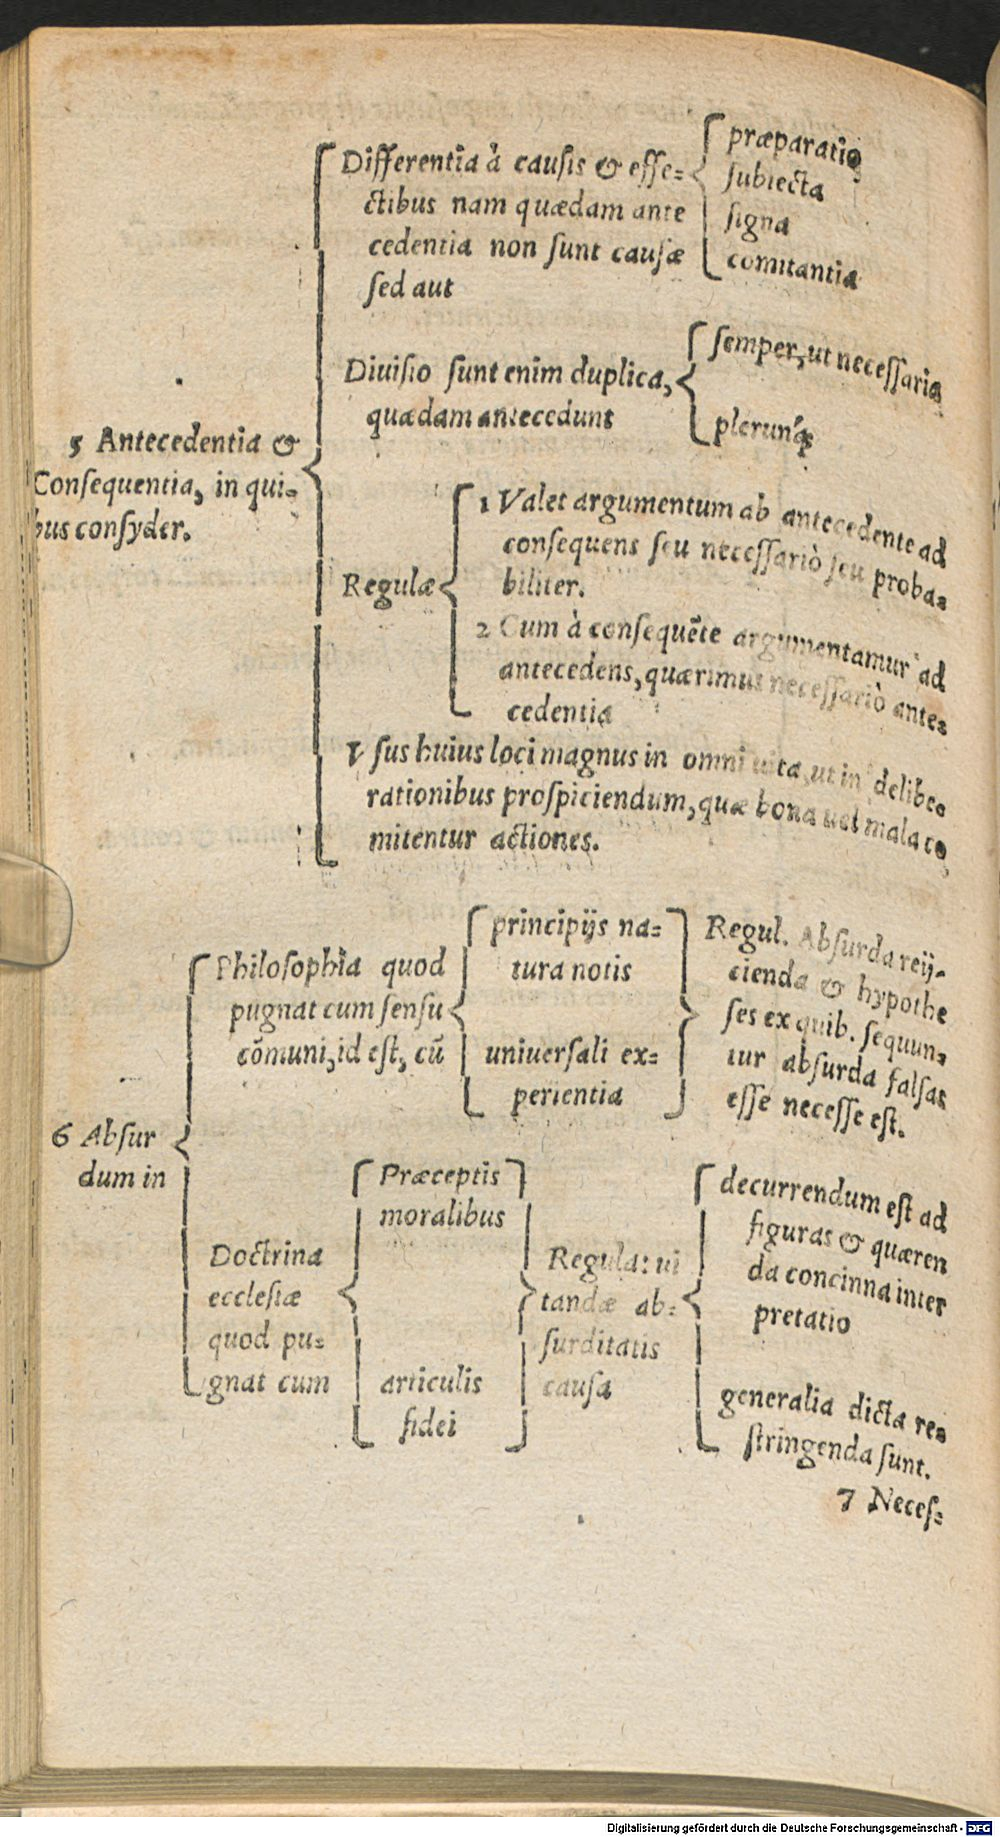 5 Antecedentia &
Consequentia, in qui-
bus consyder.
Differentia à causis & effe-
ctibus nam quædam ante
cedentia non sunt causæ
sed aut
præparatio
subiecta
signa
comitantia
Diuisio sunt enim duplica,
quædam antecedunt
semper, ut necessaria
plerunq́;
Regulæ
1 Valet argumentum ab antecedente ad
consequens seu necessariò seu proba-
biliter.
2 Cum à consequẽte argumentamur ad
antecedens, quærimus necessariò ante-
cedentia
Vsus huius loci magnus in omni uita, ut in delibe
rationibus prospiciendum, quæ bona uel mala co
mitentur actiones.
6 Absur
dum in
Philosophia quod
pugnat cum sensu
cõmuni, id est, cũ
principijs na-
tura notis
uniuersali ex-
perientia
Regul. Absurda reij-
cienda & hypothe
ses ex quib. sequun-
tur absurda falsas
esse necesse est.
Doctrina
ecclesiæ
quod pu-
gnat cum
Præceptis
moralibus
articulis
fidei
Regula: ui
tandæ ab-
surditatis
causa
decurrendum est ad
figuras & quæren
da concinna inter
pretatio
generalia dicta re-
stringenda sunt.
7 Neces-
Digitalisierung gefördert durch die Deutsche Forschungsgemeinschaft - DFG